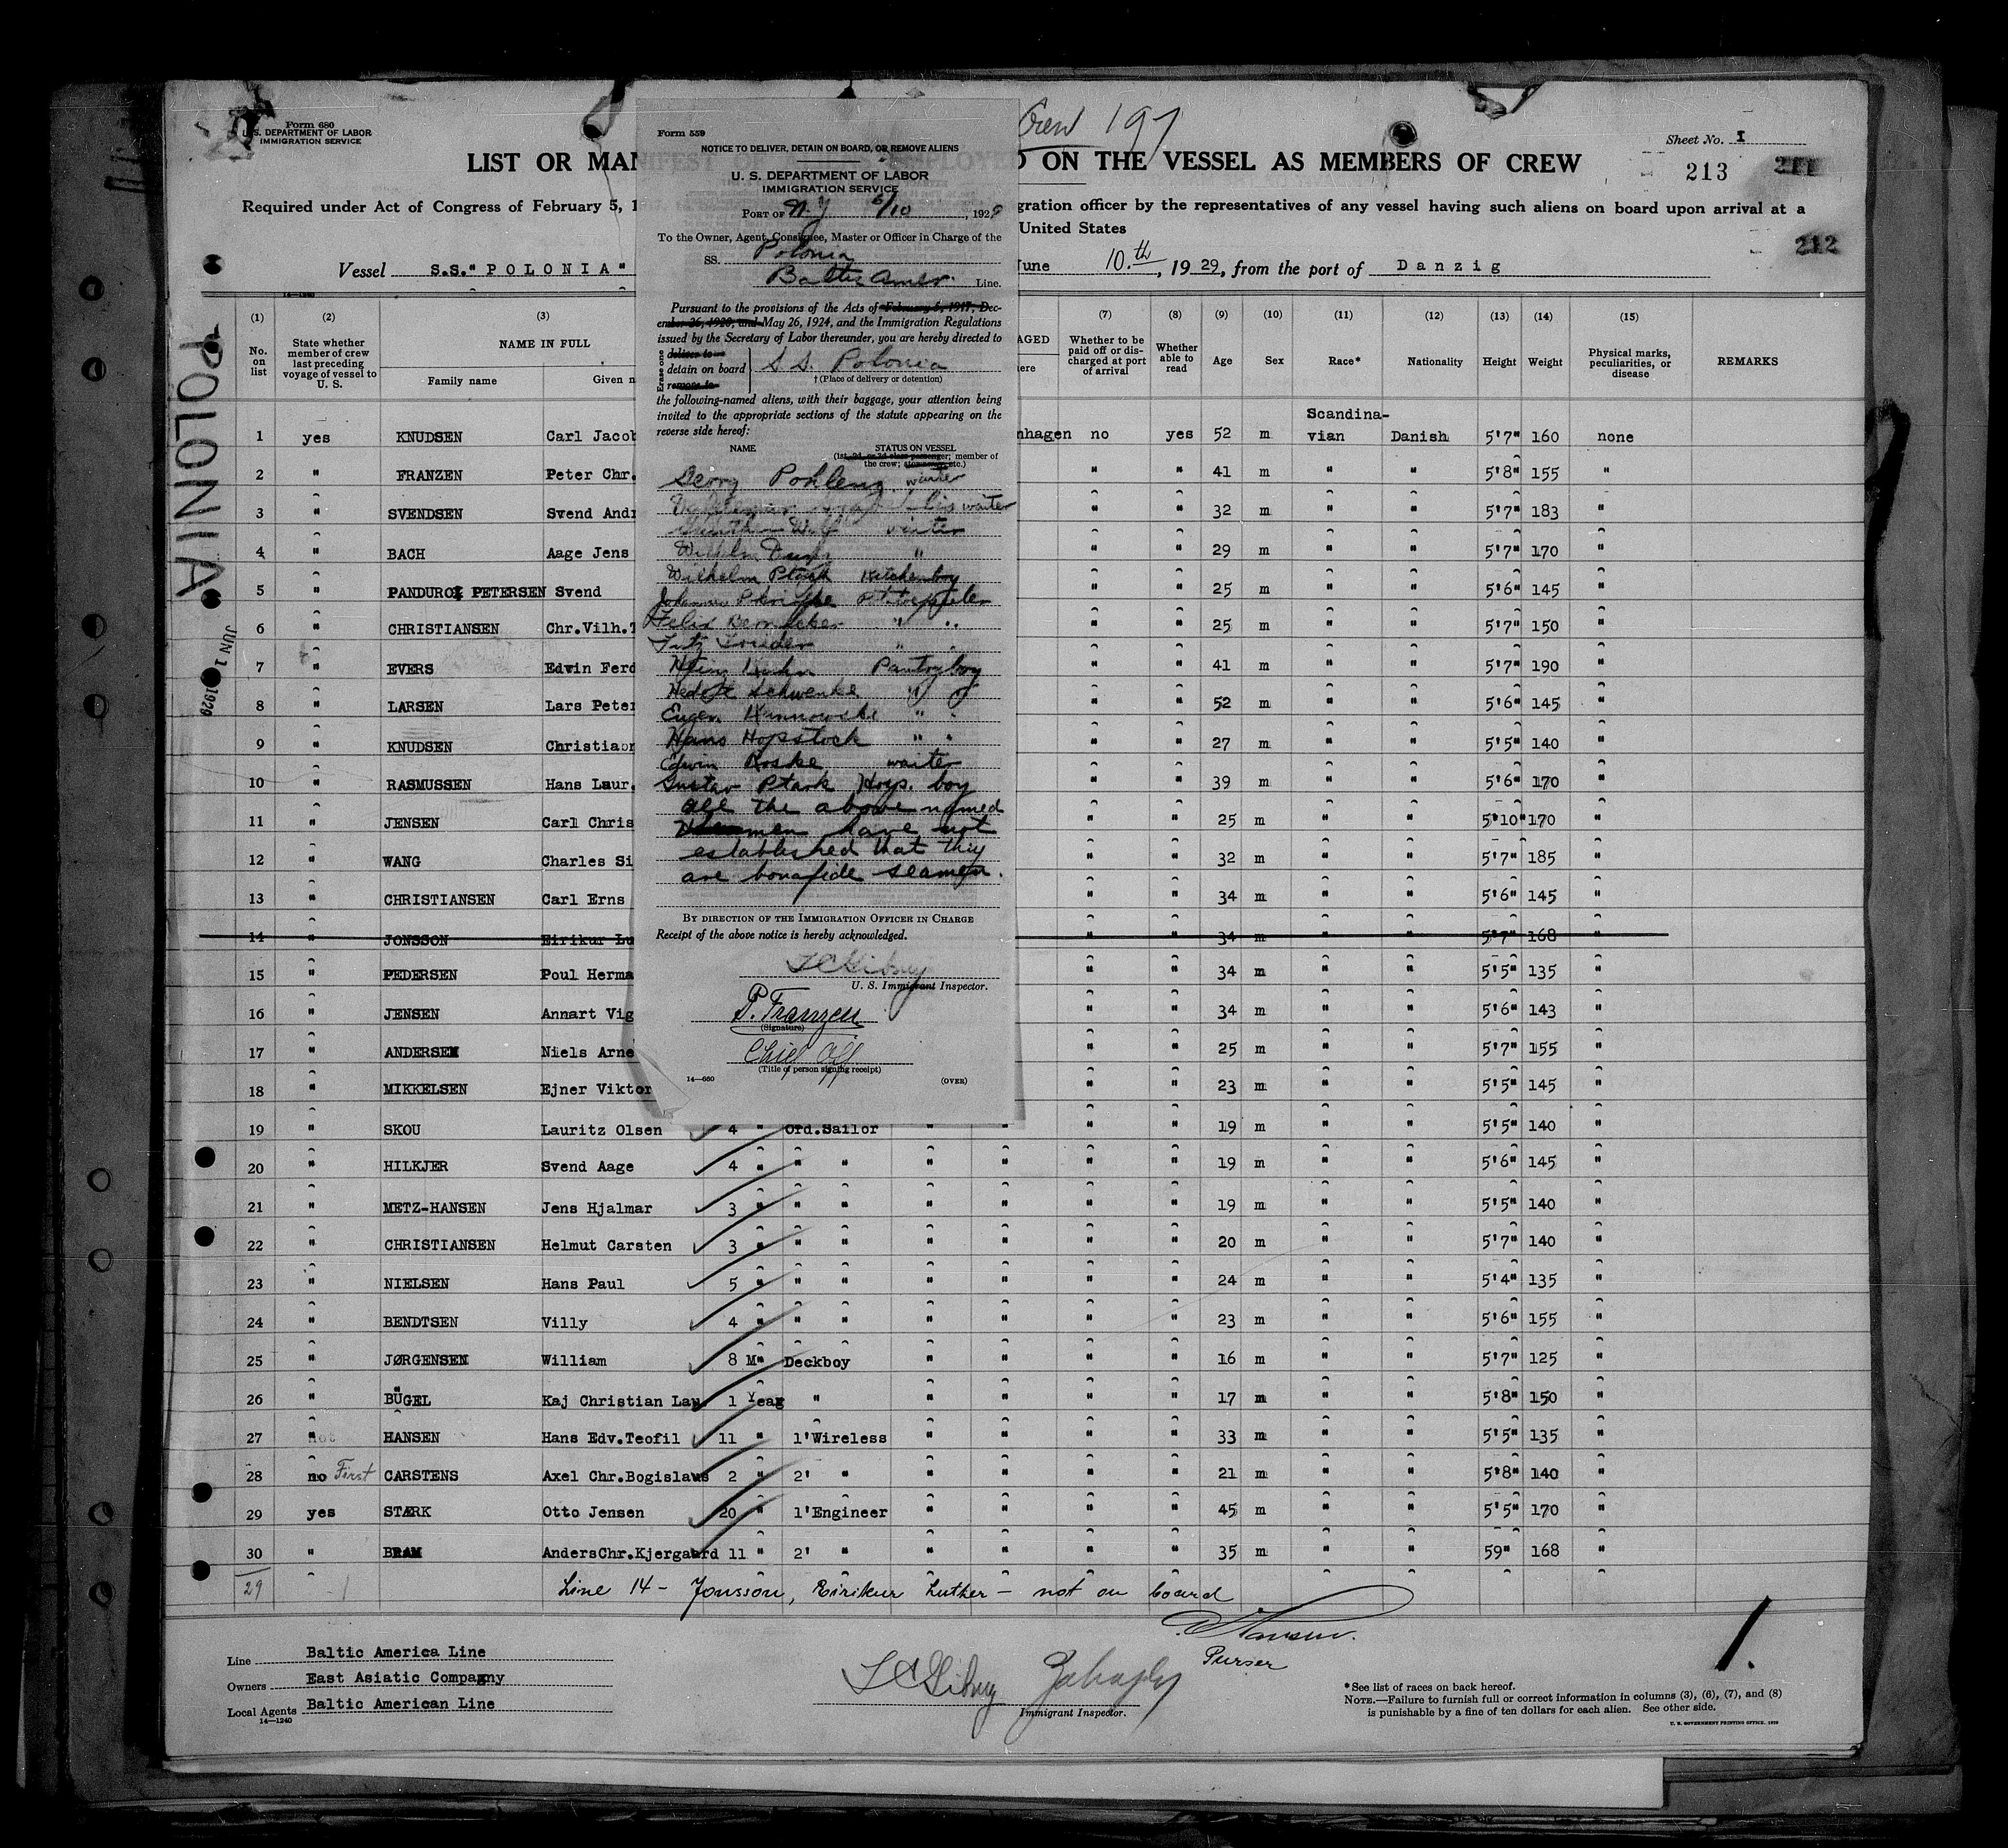 Form 680
U. S. DEPARTMENT OF LABOR
IMMIGRATION SERVICE
Crew 197
Sheet No. I
213
212
LIST OR MAN
D ON THE VESSEL AS MEMBERS OF CREW
Required under Act of Congress of February 5, 1
gration officer by the representatives of any vessel having such aliens on board upon arrival at a
United States
Vessel S.S."POLONIA"
June 10.th, 1929, from the port of Danzig
POLONIA
JUN 1 1929
Form 559
NOTICE TO DELIVER, DETAIN ON BOARD, OR REMOVE ALIENS
U. S. DEPARTMENT OF LABOR
IMMIGRATION SERVICE
PORT OF N.Y 6/10, 1929
To the Owner, Agent, Consignee, Master or Officer in Charge of the
SS. Polonia
Baltic Amer. Line.
Pursuant to the provisions of the Acts of February 5, 1917, Dec-
ember 26, 1920, and May 26, 1924, and the Immigration Regulations
issued by the Secretary of Labor thereunder, you are hereby directed to
Erase one
deliver to
detain on board
remove to
S.S. Polonia
† (Place of delivery or detention)
the following-named aliens, with their baggage, your attention being
invited to the appropriate sections of the statute appearing on the
reverse side hereof:
NAME STATUS ON VESSEL
(1st, 2d, or 3d class passenger; member of
the crew; stowaway, etc.)
Georg Pohlenz waiter
waiter
Gunther Wolf waiter
Wilhelm "
Wilhelm Ptack Kitchenboy
Johannes
Felix Bernecker " "
Fritz "
Heinz Kuhn Pantryboy
Schwenke " "
Eugen " "
Hans Hopstock " "
Edwin Roske waiter
Gustav Ptack Hosp. boy
all the above named
men have not
established that they
are bonafide seamen.
BY DIRECTION OF THE IMMIGRATION OFFICER IN CHARGE
Receipt of the above notice is hereby acknowledged.
U. S. Immigrant Inspector.
P. Franzen
(Signature)
Chief Off
(Title of person signing receipt)
14—660 (OVER)
(1) (2) (3) (7) (8) (9) (10) (11) (12) (13) (14) (15)
No. on list State whether member of crew last preceding voyage of vessel to U. S. NAME IN FULL Family name Given n AGED ere Whether to be paid off or dis-charged at port of arrival Whether able to read Age Sex Race* Nationality Height Weight Physical marks, peculiarities, or disease REMARKS
1 yes KNUDSEN Carl Jacob nhagen no yes 52 m Scandina-vian Danish 5'7" 160 none
2 " FRANZEN Peter Chr. " " 41 m " " 5'8" 155 "
3 " SVENDSEN Svend Andr " " 32 m " " 5'7" 183 "
4 " BACH Aage Jens " " 29 m " " 5'7" 170 "
5 " PANDURO PETERSEN Svend " " 25 m " " 5'6" 145 "
6 " CHRISTIANSEN Chr.Vilh.T " " 25 m " " 5'7" 150 "
7 " EVERS Edwin Ferd " " 41 m " " 5'7" 190 "
8 " LARSEN Lars Peter " " 52 m " " 5'6" 145 "
9 " KNUDSEN Christian " " 27 m " " 5'5" 140 "
10 " RASMUSSEN Hans Laur. " " 39 m " " 5'6" 170 "
11 " JENSEN Carl Chris " " 25 m " " 5'10" 170 "
12 " WANG Charles Si " " 32 m " " 5'7" 185 "
13 " CHRISTIANSEN Carl Erns " " 34 m " " 5'6" 145 "
14 " JONSSON Eirikur Lu " " 34 m " " 5'7" 168 "
15 " PEDERSEN Poul Herma " " 34 m " " 5'5" 135 "
16 " JENSEN Annart Vig " " 34 m " " 5'6" 143 "
17 " ANDERSEN Niels Arne " " 25 m " " 5'7" 155 "
18 " MIKKELSEN Ejner Viktor " " 23 m " " 5'5" 145 "
19 " SKOU Lauritz Olsen 4 " Ord.Sailor " " " " 19 m " " 5'5" 140 "
20 " HILKJER Svend Aage 4 " " " " " " " 19 m " " 5'6" 145 "
21 " METZ-HANSEN Jens Hjalmar 3 " " " " " " " 19 m " " 5'5" 140 "
22 " CHRISTIANSEN Helmut Carsten 3 " " " " " " " 20 m " " 5'7" 140 "
23 " NIELSEN Hans Paul 5 " " " " " " " 24 m " " 5'4" 135 "
24 " BENDTSEN Villy 4 " " " " " " " 23 m " " 5'6" 155 "
25 " JØRGENSEN William 8 M" Deckboy " " " " 16 m " " 5'7" 125 "
26 " BÜGEL Kaj Christian Lau 1 Year " " " " " 17 m " " 5'8" 150 "
27 " HANSEN Hans Edv.Teofil 11 " 1'Wireless " " " " 33 m " " 5'5" 135 "
28 no First CARSTENS Axel Chr.Bogislaus 2 " 2' " " " " " 21 m " " 5'8" 140 "
29 yes STÆRK Otto Jensen 20 " 1'Engineer " " " " 45 m " " 5'5" 170 "
30 " BRAM AndersChr.Kjergaard 11 " 2' " " " " " 35 m " " 59" 168 "
29 Line 14 - Jonsson, Eirikur Luther - not on board
Purser
1.
Line Baltic America Line
Owners East Asiatic Company
Local Agents Baltic American Line
14—1240
Immigrant Inspector.
*See list of races on back hereof.
NOTE.—Failure to furnish full or correct information in columns (3), (6), (7), and (8)
is punishable by a fine of ten dollars for each alien. See other side.
U. S. GOVERNMENT PRINTING OFFICE. 1929